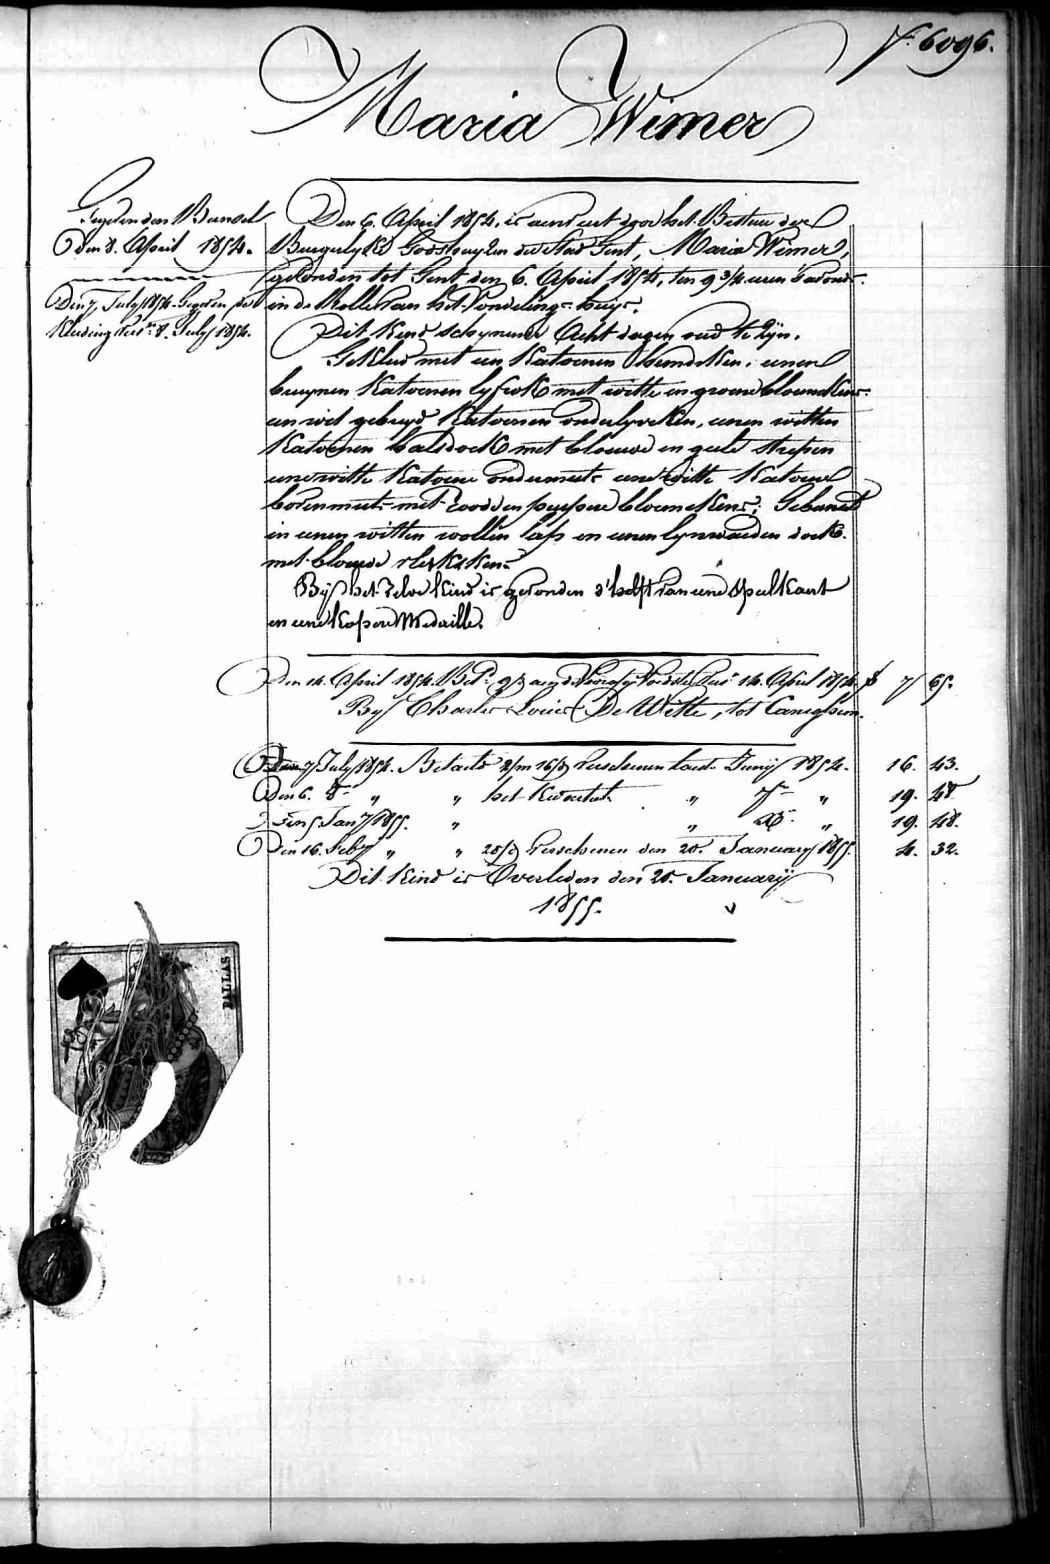 N.º 6096.
Maria Wimer
Gegeven den Bundel
Den 8. April 1854.
Den 7 July 1854. Gegeven
Kleding 8. July 1854.
Den 6. April 1854. is aenveert door het Bestier der
Burgerlyke Godshuyzen der Stad Gent, Maria Wimer,
gevonden tot Gent den 6. April 1854, ten 9 3/4 uren 's avonds
in de Rolle van het Vondeling-huys.
Dit kind schynende Acht dagen oud te zyn.
Gekleed met een Katoenen hemdeken, eenen
bruynen Katoenen lyfrok met witte en groene bloemekens
een wit gebreyd Katoenen onderlyveken, eenen witten
Katoenen halsdoek met blauwe en gele strepen
eene witte Katoene ondermuts eene witte Katoene
bovenmuts met roode en purpere bloemekens; Gebunseld
in eenen witten wollen laps en eenen lynwaeden doek
met blauwe vlekskens
Bij het zelve kind is gevonden d'helft van eene Speelkaart
en eene kopere Medaille.
Den 14. April 1854. 14. April 1854. 7 65.
By Charles Louis De Witte, tot
Den 7 July 1854. Betaeld 2/m 16/d verschenen Junij 1854. 16. 43.
Den 6. 8.bre " " het Kwartael " 7.bre " 19. 48
Den 5 Jan.y 1855. " " X.bre " 19. 48.
Den 16. Feby " " 20/d verschenen den 20. January 1855. 4. 32.
Dit kind is Overleden den 20. Januarij
1855.
PALLAS